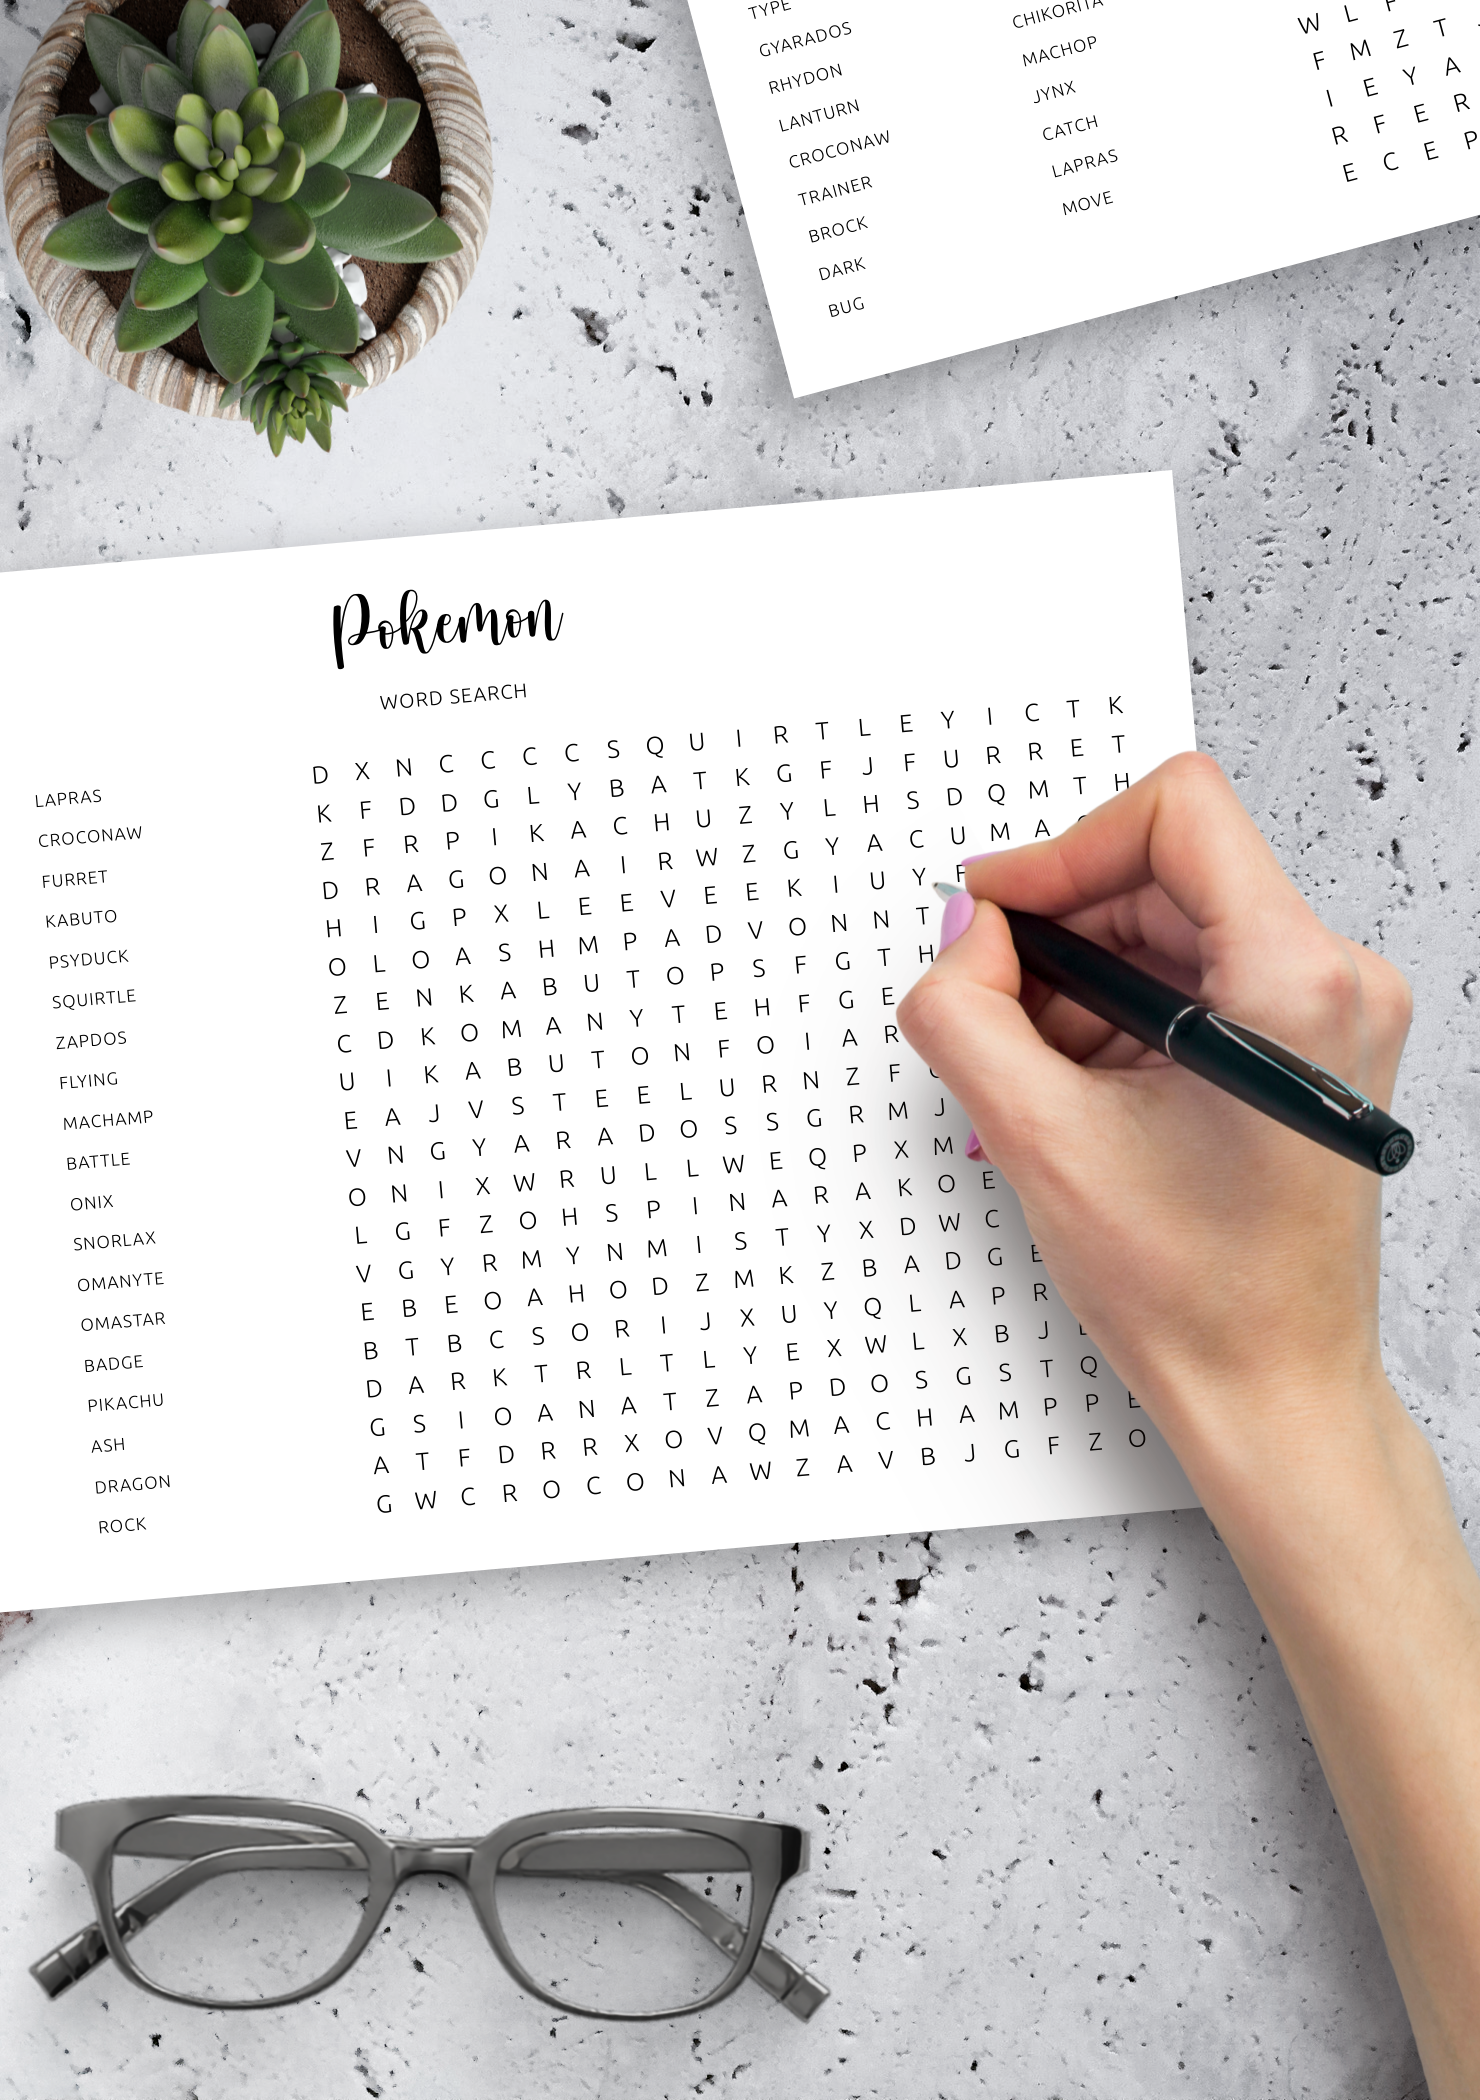 TYPE
GYARADOS
RHYDON
LANTURN
CROCONAW
TRAINER
BROCK
DARK
BUG
CHIKORITA
MACHOP
JYNX
CATCH
LAPRAS
MOVE
W L
F M Z T
I E Y A
R F E R
E C E P
Pokemon
WORD SEARCH
LAPRAS
CROCONAW
FURRET
KABUTO
PSYDUCK
SQUIRTLE
ZAPDOS
FLYING
MACHAMP
BATTLE
ONIX
SNORLAX
OMANYTE
OMASTAR
BADGE
PIKACHU
ASH
DRAGON
ROCK
D X N C C C C S Q U I R T L E Y I C T K
K F D D G L Y B A T K G F J F U R R E T
Z F R P I K A C H U Z Y L H S D Q M T H
D R A G O N A I R W Z G Y A C U M A
H I G P X L E E V E E K I U Y
O L O A S H M P A D V O N N T
Z E N K A B U T O P S F G T H
C D K O M A N Y T E H F G E
U I K A B U T O N F O I A R
E A J V S T E E L U R N Z F
V N G Y A R A D O S S G R M J
O N I X W R U L L W E Q P X M
L G F Z O H S P I N A R A K O E
V G Y R M Y N M I S T Y X D W C
E B E O A H O D Z M K Z B A D G E
B T B C S O R I J X U Y Q L A P R
D A R K T R L T L Y E X W L X B J
G S I O A N A T Z A P D O S G S T Q
A T F D R R X O V Q M A C H A M P P E
G W C R O C O N A W Z A V B J G F Z O